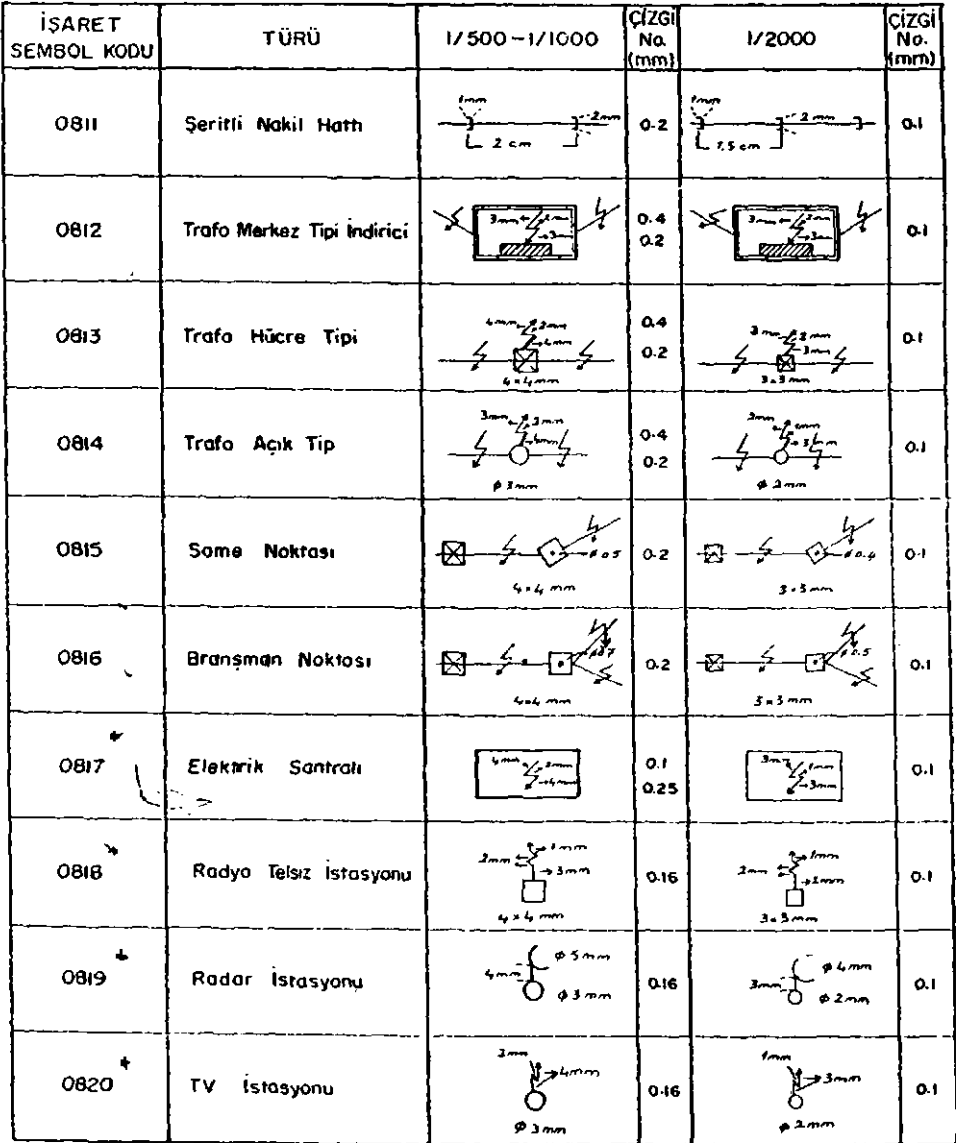 İŞARET SEMBOL KODU TÜRÜ 1/500-1/1000 ÇİZGİ No. (mm) 1/2000 ÇİZGİ No. (mm)
0811 Şeritli Nakil Hattı 1mm 2mm 2 cm 0.2 1mm 2mm 1,5 cm 0.1
0812 Trafo Merkez Tipi İndirici 3mm 2mm 3mm 0.4 0.2 3mm 2mm 3mm 0.1
0813 Trafo Hücre Tipi 4mm 2mm 4mm 4x4mm 0.4 0.2 3mm 2mm 3mm 3x3mm 0.1
0814 Trafo Açık Tip 3mm 2mm 4mm ø 3mm 0.4 0.2 2mm 3mm ø 2mm 0.1
0815 Some Noktası ø 0.5 4x4 mm 0.2 ø 0.4 3x3 mm 0.1
0816 Branşman Noktası ø 0.7 4x4 mm 0.2 ø 0.5 3x3 mm 0.1
0817 Elektrik Santralı 4mm 2mm 4mm 0.1 0.25 3mm 1mm 3mm 0.1
0818 Radyo Telsiz İstasyonu 1mm 2mm 3mm 4x4 mm 0.16 1mm 2mm 2mm 3x3mm 0.1
0819 Radar İstasyonu ø 5mm 4mm ø 3mm 0.16 ø 4mm 3mm ø 2mm 0.1
0820 TV İstasyonu 2mm 4mm ø 3mm 0.16 1mm 3mm ø 2mm 0.1